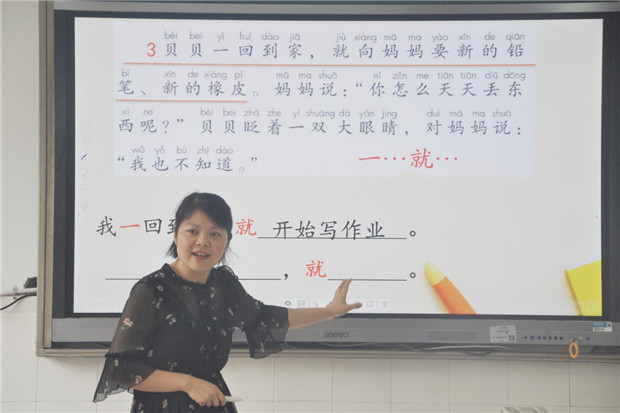 bèi bei yì huí dào jiā jiù xiàng mā ma yào xīn de qiān
3 贝贝一回到家，就向妈妈要新的铅
bǐ xīn de xiàng pí mā ma shuō nǐ zěn me tiān tiān diū dōng
笔、新的橡皮。妈妈说：“你怎么天天丢东
xi ne bèi bei zhǎ zhe yì shuāng dà yǎn jing duì mā ma shuō
西呢？”贝贝眨着一双大眼睛，对妈妈说：
wǒ yě bù zhī dào
“我也不知道。”
一…就…
我一回到 就 开始写作业 。
，就 。
seewo